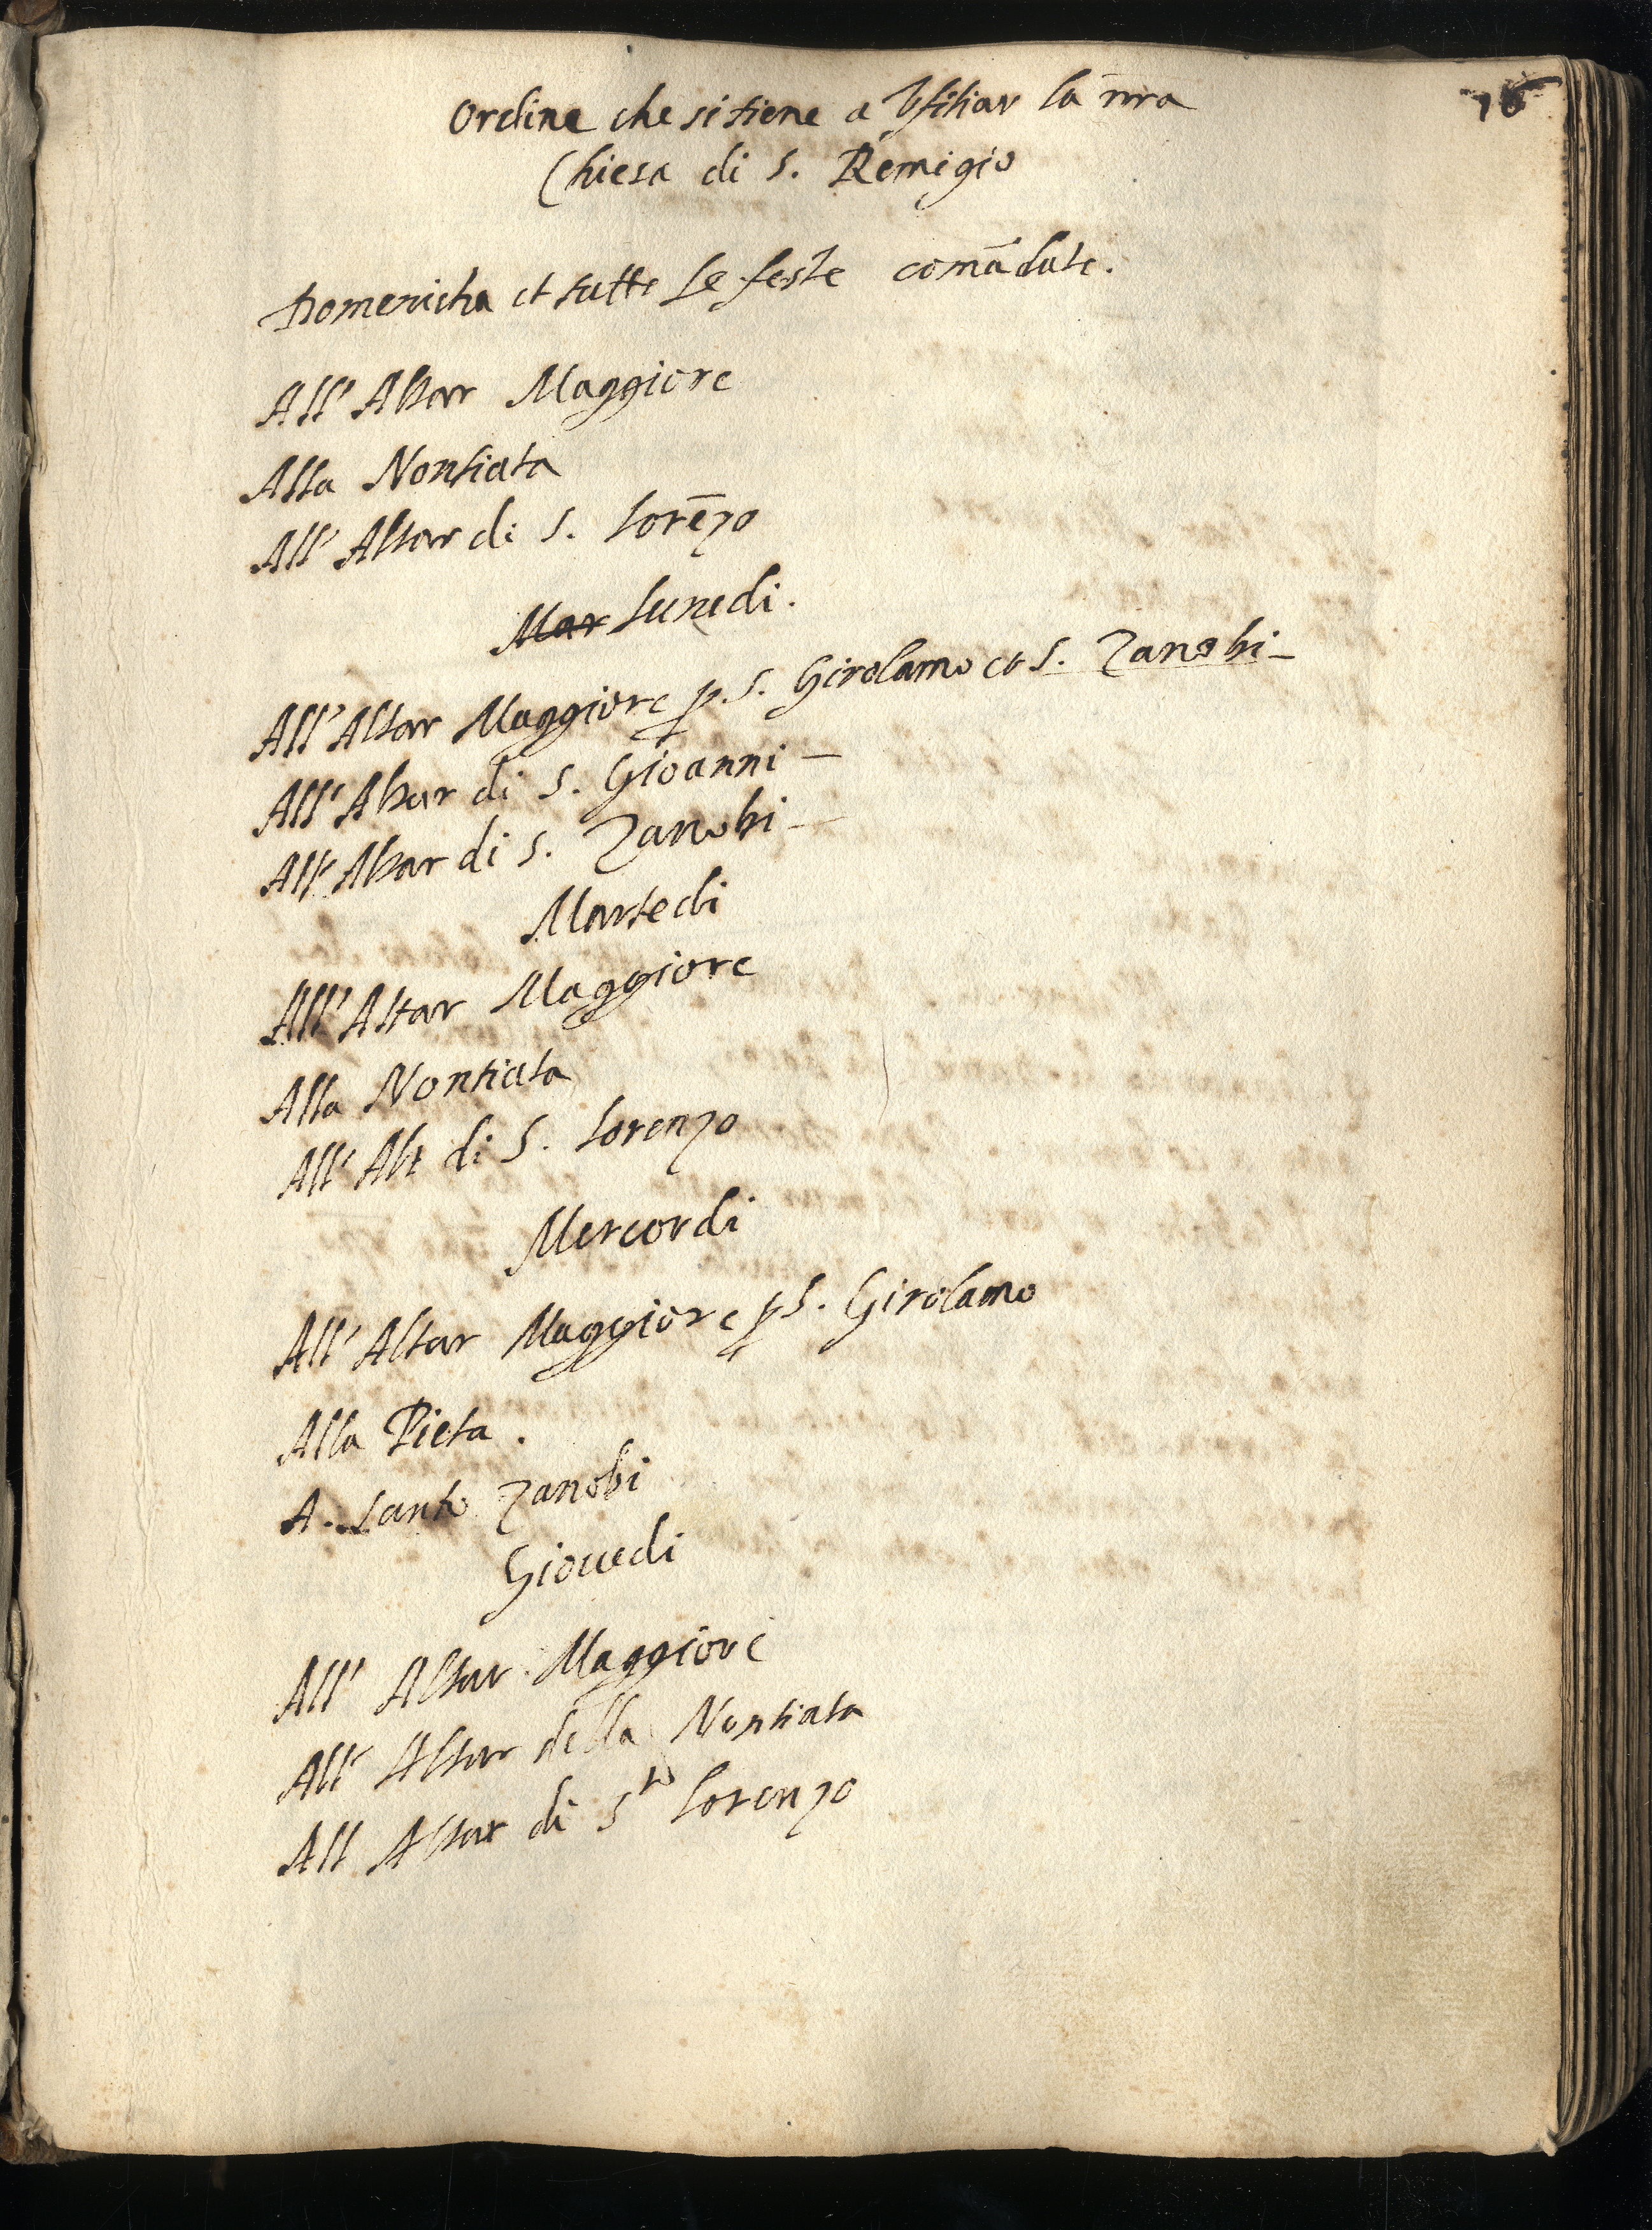 Ordine che si tiene a Ufitiar la nr̄a
Chiesa di S. Remigio
Domenicha et tutte le feste comādate.
All' Altar Maggiore
Alla Nontiata
All' Altar di S. Lorēzo
Mar Lunedi.
All' Altar Maggiore p. S. Girolamo et S. Zanobi_
All' Altar di S. Gioanni _
All' Altar di S. Zanobi _
Martedi
All' Altar Maggiore
Alla Nontiata
All' Alt di S. Lorenzo
Mercordi
All' Altar Maggiore p S. Girolamo
Alla Pieta.
A. Santo Zanobi
Giouedi
All' Altar Maggiore
All' Altar della Nontiata
All Altar di Sto Lorenzo